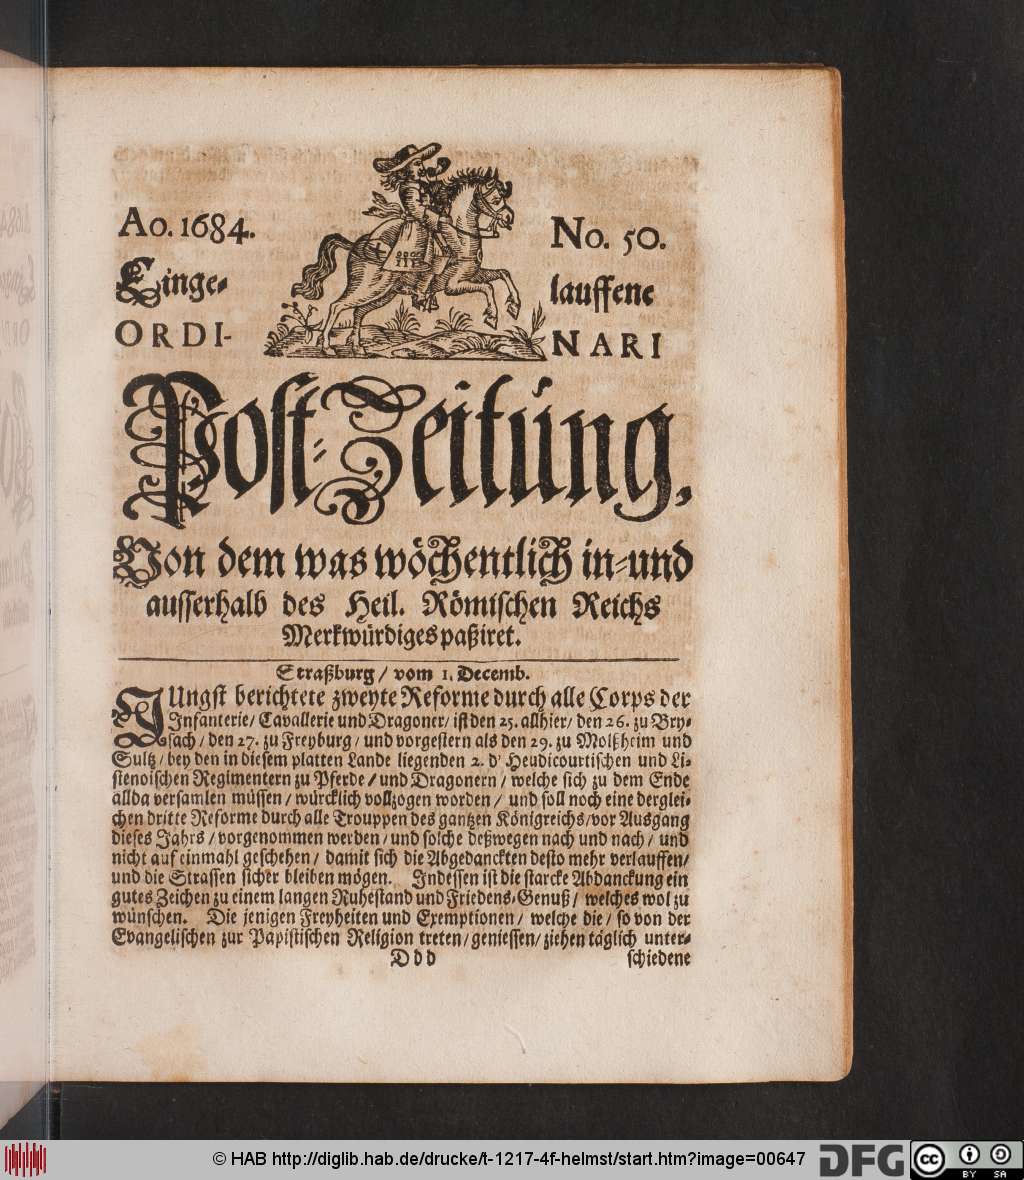 Ao. 1684.
No. 50.
Einge-
lauffene
ORDI-
NARI
Post-Zeitung,
Von dem was wöchentlich in-und
ausserhalb des Heil. Römischen Reichs
Merkwürdiges paßiret.
Straßburg / vom 1. Decemb.
JUngst berichtete zweyte Reforme durch alle Corps der
Infanterie / Cavallerie und Dragoner / ist den 25. allhier / den 26. zu Bry-
sach / den 27. zu Freyburg / und vorgestern als den 29. zu Moltzheim und
Sultz / bey den in diesem platten Lande liegenden 2. d' Heudicourtischen und Li-
stenoischen Regimentern zu Pferde / und Dragonern / welche sich zu dem Ende
allda versamlen müssen / würcklich vollzogen worden / und soll noch eine derglei-
chen dritte Reforme durch alle Trouppen des gantzen Königreichs / vor Ausgang
dieses Jahrs / vorgenommen werden / und solche deßwegen nach und nach / und
nicht auf einmahl geschehen / damit sich die Abgedanckten desto mehr verlauffen /
und die Strassen sicher bleiben mögen. Indessen ist die starcke Abdanckung ein
gutes Zeichen zu einem langen Ruhestand und Friedens-Genuß / welches wol zu
wünschen. Die jenigen Freyheiten und Exemptionen / welche die / so von der
Evangelischen zur Papistischen Religion treten / geniessen / ziehen täglich unter-
Ddd
schiedene
© HAB http://diglib.hab.de/drucke/t-1217-4f-helmst/start.htm?image=00647
DFG
cc
BY SA